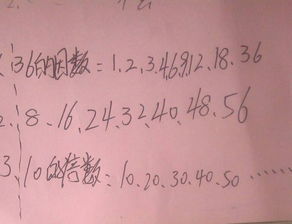 36的因数:1.2.3.4.6.9.12.18.36
2、8、16、24、32、40、48、56
3、10的倍数:10、20、30、40、50……